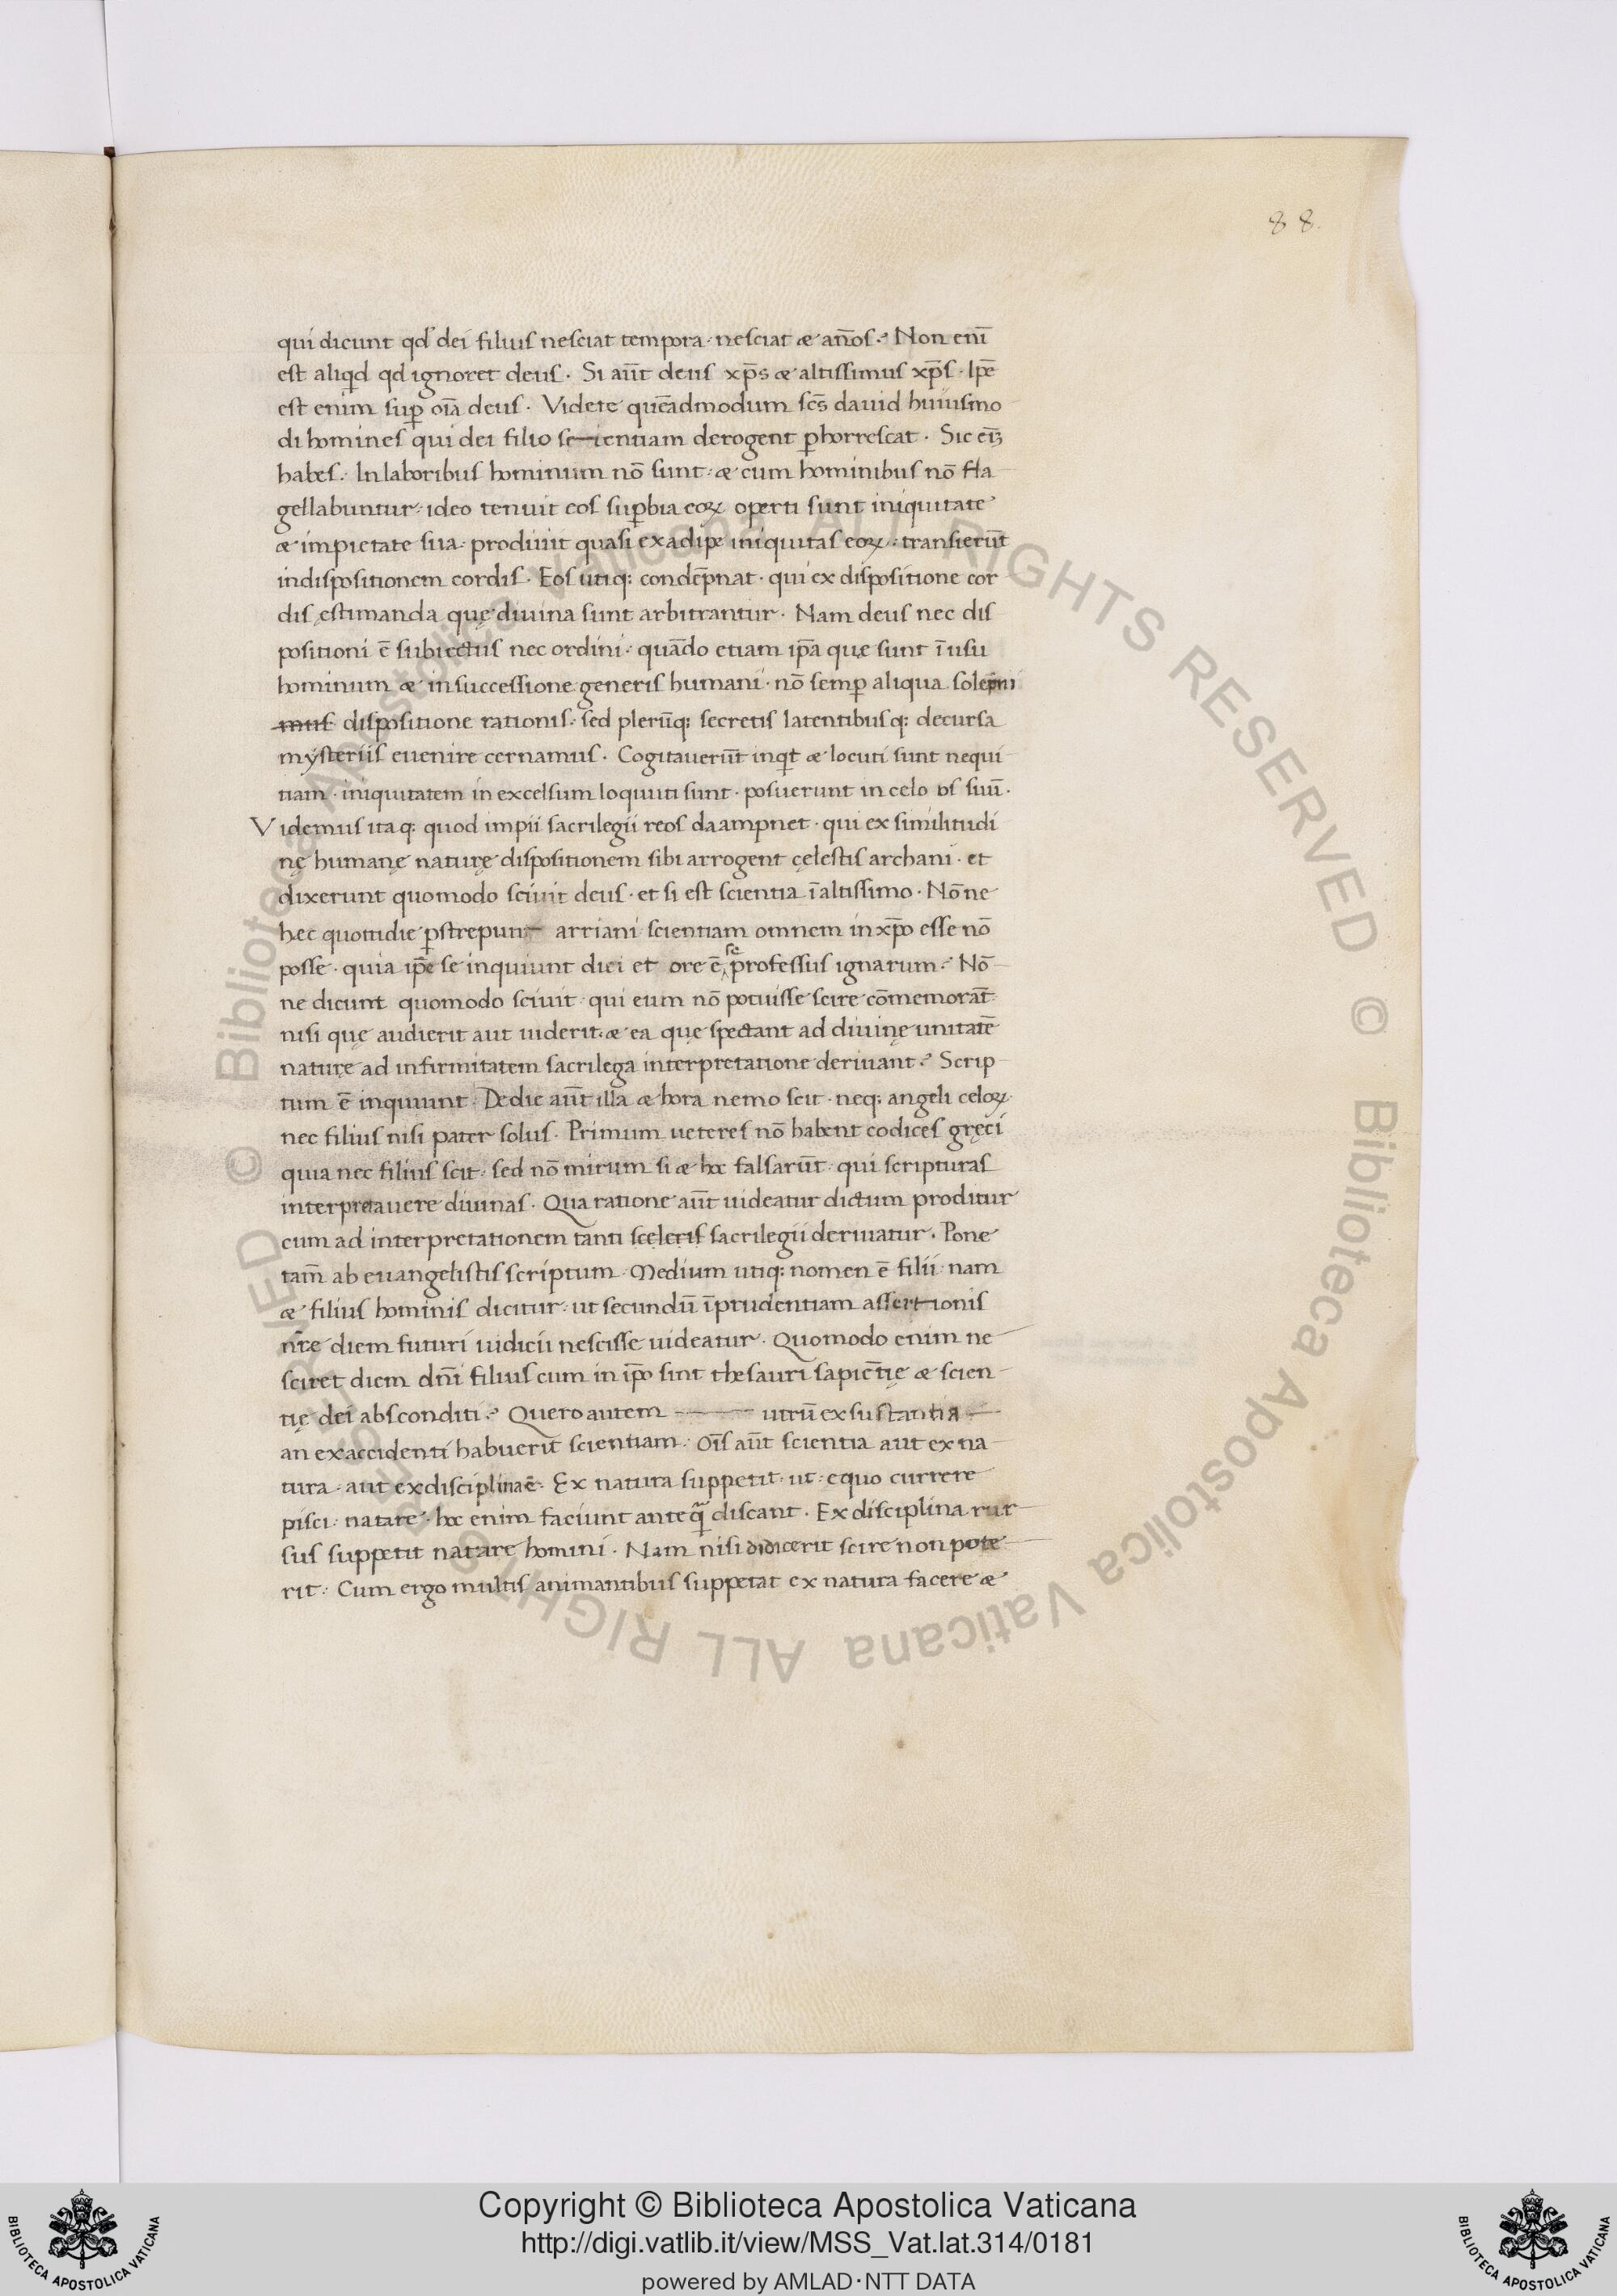 88.
qui dicunt qd̄ dei filius nesciat tempora · nesciat & an̄os? Non enī
est aliq̇d qd ignoret deus · Si aūt deus xp̄s & altissimus xp̄s · Ip̄e
est enim sup̄ oīa deus · Videte quēadmodum scs̄ dauid huiusmo
di homines qui dei filio scientiam derogent p̱horrescat · Sic eīꝫ
habes · In laboribus hominum nō sunt · & cum hominibus nō fla
gellabuntur · ideo tenuit eos sup̱bia eoꝝ operti sunt iniquitate
& impietate sua · prodiuit quasi ex adipe iniquitas eoꝝ · transierūt
in dispositionem cordis · Eos utiq: condēpnat · qui ex dispositione cor
dis ęstimanda quę diuina sunt arbitrantur · Nam deus nec dis
positioni ē subiectus nec ordini · quādo etiam ip̄a quę sunt ī usu
hominum & in successione generis humani · nō semp̱ aliqua solēpni
mus dispositione rationis · sed plerūq: secretis latentibusq: decursa
mysteriis euenire cernamus · Cogitauerūt inq̇t & locuti sunt nequi
tiam · iniquitatem in excelsum loquuti sunt · posuerunt in celo os suū ·
Videmus itaq: quod impii sacrilegii reos daampnet · qui ex similitudi
nę humanę naturę dispositionem sibi arrogent cęlestis archani · et
dixerunt quomodo sciuit deus · et si est scientia ī altissimo · Nōne
hęc quottidie p̱strepunt arriani scientiam omnem in xp̄o esse nō
posse · quia ip̄e se inquiunt diei et ore ē sē professus ignarum? Nō
ne dicunt quomodo sciuit · qui eum nō potuisse scire cōmemorāt
nisi quę audierit aut uiderit · & ea quę spectant ad diuinę unitatē
naturę ad infirmitatem sacrilega interpretatione deriuant? Scrip
tum ē inquiunt · De die aūt illa & hora nemo scit · neq: angeli celoꝝ
nec filius nisi pater solus · Primum ueteres nō habent codices gręci
quia nec filius scit · sed nō mirum si & hoc falsarūt · qui scripturas
interpretauere diuinas · Qua ratione aūt uideatur dictum proditur
cum ad interpretationem tanti sceleris sacrilegii deriuatur · Pone
tam̄ ab euangelistis scriptum · Medium utiq: nomen ē filii · nam
& filius hominis dicitur · ut secundū īprudentiam assertionis
nr̄e diem futuri iudicii nescisse uideatur · Quomodo enim ne
sciret diem dn̄i filius cum in ip̄o sint thesauri sapiētię & scien
tię dei absconditi? Quero autem utrū ex sustantia
an ex accidenti habuerit scientiam · Oīs aūt scientia aut ex na
tura · aut ex disciplina ē · Ex natura suppetit · ut · equo currere
pisci · natare · hoc enim faciunt anteq̄ discant · Ex disciplina rur
sus suppetit natare homini · Nam nisi didicerit scire non pote
rit · Cum ergo multis animantibus suppetat ex natura facere &
© Biblioteca Apostolica Vaticana ALL RIGHTS RESERVED © Biblioteca Apostolica Vaticana ALL RIGHTS RESERVED
Copyright © Biblioteca Apostolica Vaticana
http://digi.vatlib.it/view/MSS_Vat.lat.314/0181
powered by AMLAD·NTT DATA
BIBLIOTECA APOSTOLICA VATICANA
BIBLIOTECA APOSTOLICA VATICANA